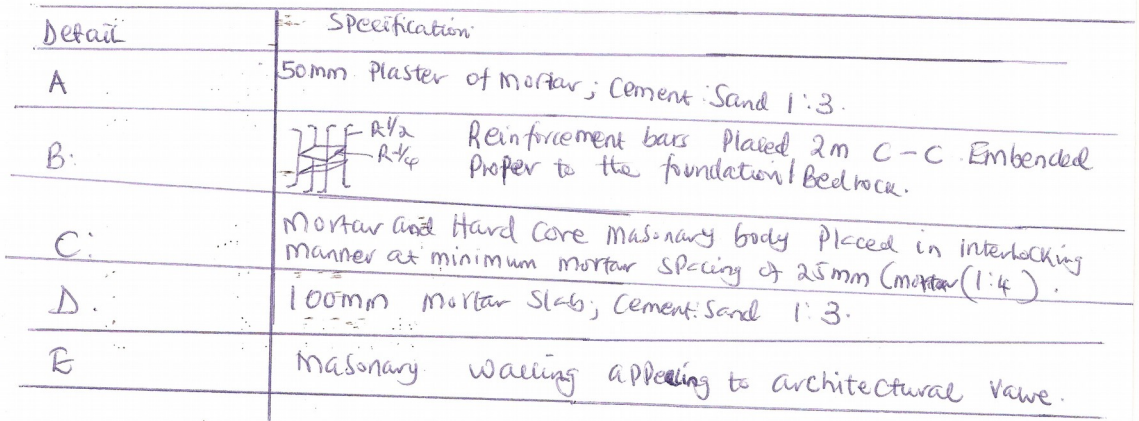 Detail Specification
A 50mm Plaster of mortar; Cement: Sand 1:3.
B: R1/2 Reinforcement bars Placed 2m C-C Embended
R1/4 Proper to the foundation/Bedrock.
C: Mortar and Hard Core masonary body Placed in interlocking
manner at minimum mortar spacing of 25mm (mortar (1:4).
D. 100mm mortar Slab; Cement: Sand 1:3.
E Masonary walling appealing to architectural value.